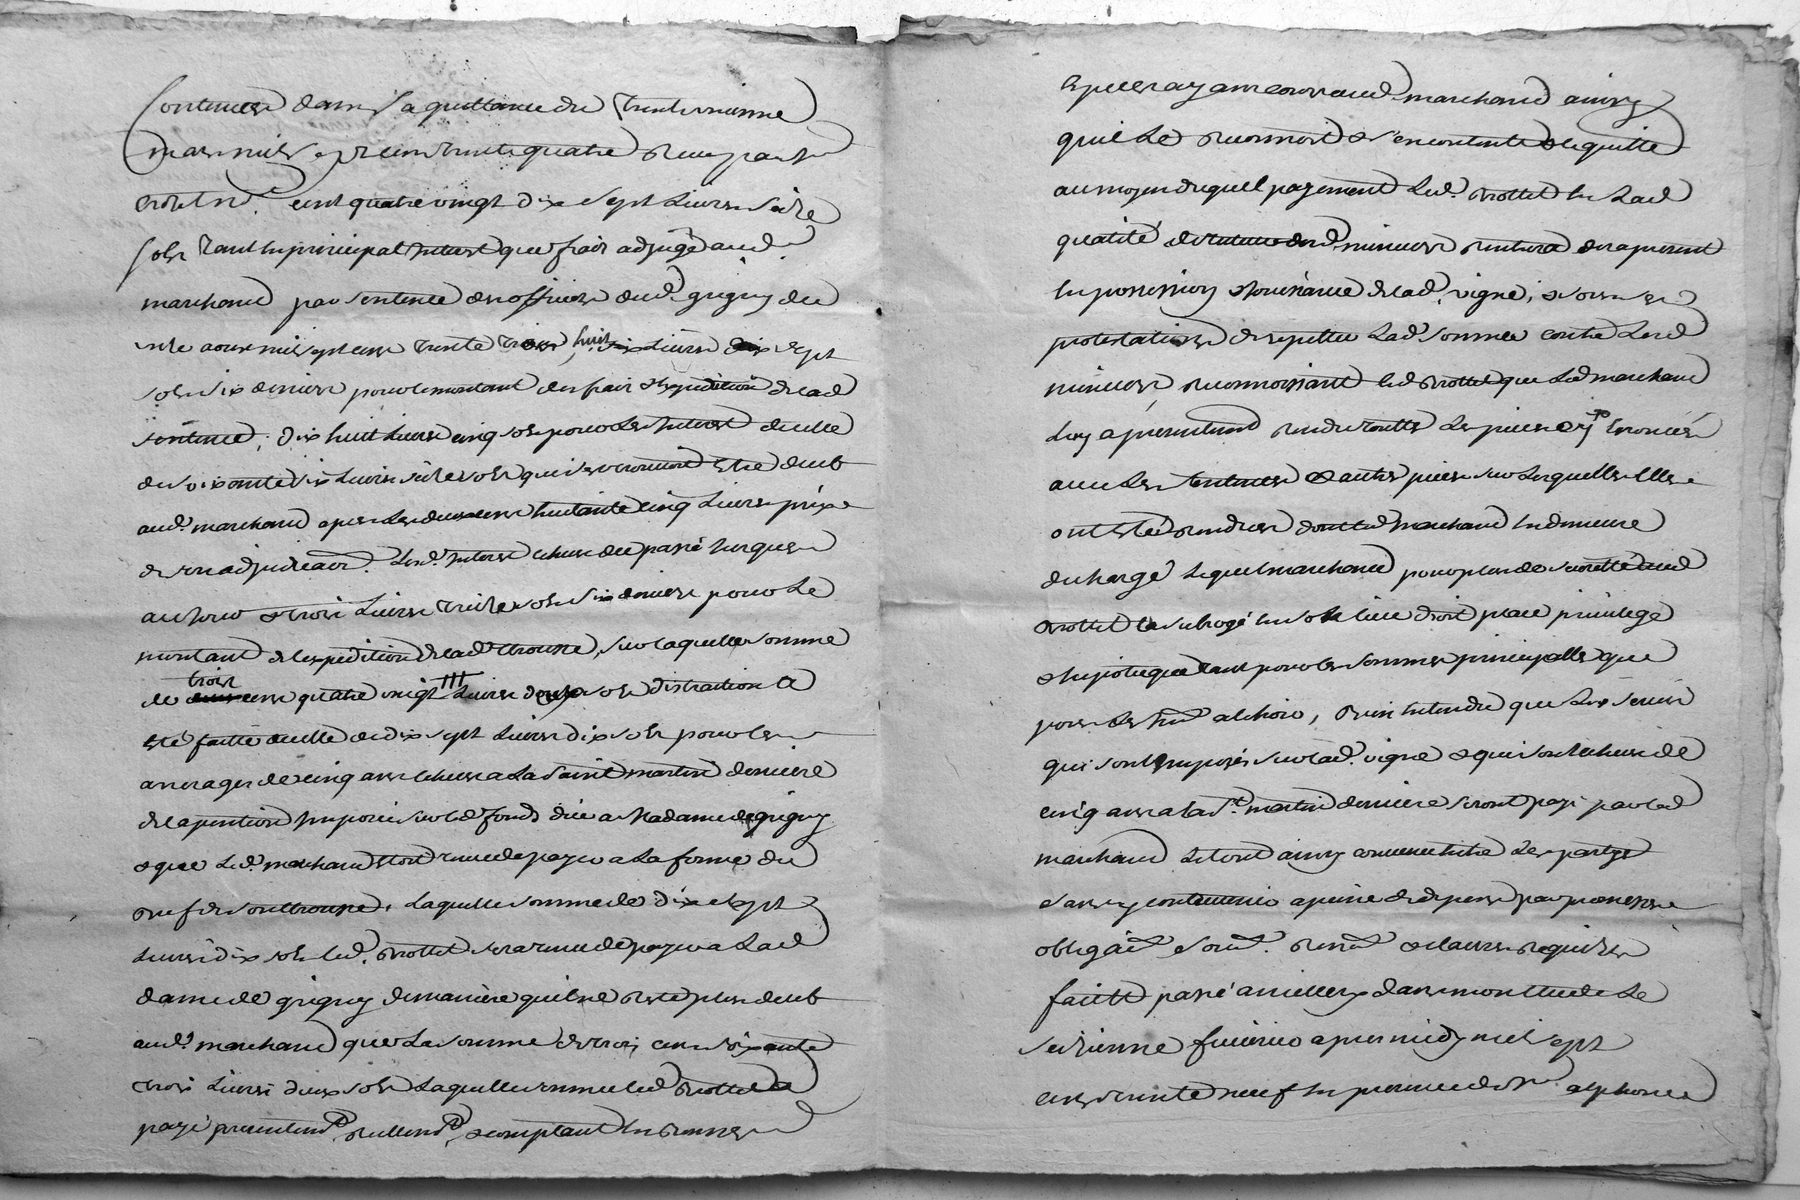 contenues dans la quittance du trente uniesme
mars mil sept cent trente quatre receu par
cent quatre vingt dix sept livres seize
sols tant en principal interest que frais adjugé aud.
marchand par sentence des officiers dud. grigny du
aoust mil sept cent trente trois, huit livres sept
sols six deniers pour le montant des frais et expedition de lad
sentence, dix huit livres cinq sols pour les interest d'icelle
de soixante dix livres seize sols qui se trouvoient estre deub
aud. marchand apres les deux cent huitante cinq livres prix
de son adjudicaon. lesd. interest echeus du passé jusques
au jour et trois livres treize sols six deniers pour le
montant de l'expedition de lad. trousse, sur laquelle somme
de trois cens quatre vingt livres douze sols distraction a
esté faitte d'icelle de dix sept livres dix sols pour les
arrerages de cinq ans echeus a la saint martin derniere
de la pention imposée sur led fonds düe a Madame de grigny
et que led. marchand estoit tenu de payer a la forme du
de son trousse, laquelle somme de dix sept
livres dix sols led. trottet sera tenu de payer a lad
dame de grigny de maniere qu'il ne reste plus deub
aud. marchand que la somme de trois cens soixante
trois livres deux sols laquelle somme led trottet a
payé presentemt, reellemt, et comptant en bonnes
especes ayans cours aud. marchand ainsy
qu'il le reconnoit et s'en contente et le quitte
au moyen duquel payement led. trottet en lad
qualité de tuteur desd. mineurs rentrera des a present
en possession et jouissance de lad. vigne, et sous ses
protestations de repetter lad somme contre lesd
mineurs, reconnoissant led trottet que led marchand
luy a presentemt rendu toutte les pieces cy enoncées
avec les sentences et autres pieces sur lesquelles elles
ont esté rendues dont led marchand en demeure
dechargé lequel marchand pour plus de seureté dud
trottet l'a subrogé en son lieu droit place privilege
et hipoteque tant pour les sommes principalle que
pour les a echoir, bien entendu que les servis
qui sont imposés sur lad. vigne et qui sont echeus de
cinq ans a la St. martin derniere seront payé par led
marchand le tout ainsy convenu entre les parties
a peine de depens par promesse
obligaon et clauses requises
faitte passé a millery dans mon etude le
seizieme fevrier apres midy mil sept
cens trente neuf en presence de sr alphonce